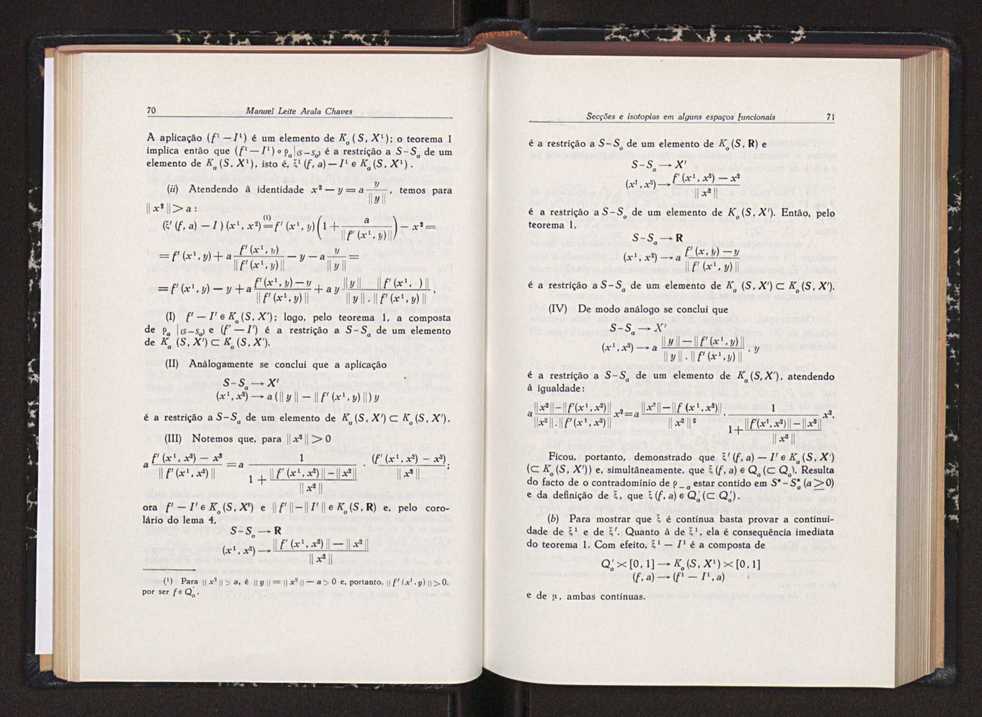 70 Manuel Leite Arala Chaves
A aplicação (f¹ — I¹) é um elemento de Kₒ (S, X¹); o teorema 1
implica então que (f¹ — I¹) ∘ ρₐ |(S−Sₐ) é a restrição a S−Sₐ de um
elemento de Kₐ (S, X¹), isto é, ξ¹ (f, a) — I¹ ∈ Kₐ (S, X¹).
(ii) Atendendo à identidade x² — y = a y / ‖y‖, temos para
‖x²‖ > a :
(ξ′ (f, a) — I′) (x¹, x²) (1)= f′ (x¹, y) (1 + a / ‖f′ (x¹, y)‖) — x² =
= f′ (x¹, y) + a f′ (x¹, y) / ‖f′ (x¹, y)‖ — y — a y / ‖y‖ =
= f′ (x¹, y) — y + a (f′ (x¹, y) — y) / ‖f′ (x¹, y)‖ + a y (‖y‖ ‖f′ (x¹, )‖) / (‖y‖ . ‖f′ (x¹, y)‖) .
(I) f′ — I′ ∈ Kₒ (S, X′); logo, pelo teorema 1, a composta
de ρₐ |(S−Sₐ) e (f′ — I′) é a restrição a S−Sₐ de um elemento
de Kₐ (S, X′) ⊂ Kₒ (S, X′).
(II) Anàlogamente se conclui que a aplicação
S−Sₐ → X′
(x¹, x²) → a (‖y‖ — ‖f′ (x¹, y)‖) y
é a restrição a S−Sₐ de um elemento de Kₐ (S, X′) ⊂ Kₒ (S, X′).
(III) Notemos que, para ‖x²‖ > 0
a (f′ (x¹, x²) — x²) / ‖f′ (x¹, x²)‖ = a 1 / (1 + (‖f′ (x¹, x²)‖ — ‖x²‖) / ‖x²‖) . (f′ (x¹, x²) — x²) / ‖x²‖ ;
ora f′ — I′ ∈ Kₒ (S, X′) e ‖f′‖ — ‖I′‖ ∈ Kₒ (S, R) e, pelo coro-
lário do lema 4,
S−Sₒ → R
(x¹, x²) → (‖f′ (x¹, x²)‖ — ‖x²‖) / ‖x²‖
(¹) Para ‖x²‖ > a, é ‖y‖ = ‖x²‖ — a > 0 e, portanto, ‖f′ (x¹, y)‖ > 0,
por ser f ∈ Q′ₒ.
Secções e isotopias em alguns espaços funcionais 71
é a restrição a S−Sₒ de um elemento de Kₒ (S, R) e
S−Sₒ → X′
(x¹, x²) → (f′ (x¹, x²) — x²) / ‖x²‖
é a restrição a S−Sₒ de um elemento de Kₒ (S, X′). Então, pelo
teorema 1,
S−Sₐ → R
(x¹, x²) → a (f′ (x, y) — y) / ‖f′ (x¹, y)‖
é a restrição a S−Sₐ de um elemento de Kₐ (S, X′) ⊂ Kₒ (S, X′).
(IV) De modo análogo se conclui que
S−Sₐ → X′
(x¹, x²) → a (‖y‖ — ‖f′ (x¹, y)‖) / (‖y‖ . ‖f′ (x¹, y)‖) . y
é a restrição a S−Sₐ de um elemento de Kₐ (S, X′), atendendo
à igualdade:
a (‖x²‖ — ‖f′(x¹, x²)‖) / (‖x²‖ . ‖f′ (x¹, x²)‖) x² = a (‖x²‖ — ‖f (x¹, x²)‖) / ‖x²‖² . 1 / (1 + (‖f′(x¹, x²)‖ — ‖x²‖) / ‖x²‖) x².
Ficou, portanto, demonstrado que ξ′ (f, a) — I′ ∈ Kₐ (S, X′)
(⊂ Kₒ (S, X′)) e, simultâneamente, que ξ (f, a) ∈ Qₐ (⊂ Qₒ). Resulta
do facto de o contradomínio de ρ₋ₐ estar contido em S* — S*ₐ (a ≥ 0)
e da definição de ξ, que ξ (f, a) ∈ Q′ₐ (⊂ Q′ₒ).
(b) Para mostrar que ξ é contínua basta provar a continui-
dade de ξ¹ e de ξ′. Quanto à de ξ¹, ela é consequência imediata
do teorema 1. Com efeito, ξ¹ — I¹ é a composta de
Q′ₒ × [0, 1] → Kₒ (S, X¹) × [0, 1]
(f, a) → (f¹ — I¹, a)
e de μ, ambas contínuas.